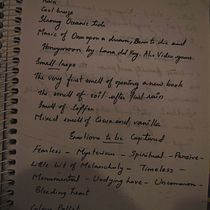 Rain
Cool breeze
Strong Oceanic tide
Music of Once upon a dream, Born to die and
Honeymoon by Lana del Rey. Also Video games.
Small ways
The very first smell of opening a new book
The smell of soil after first rain
Smell of Coffee
Mixed smell of Cocoa and vanilla
Emotions to be Captured
Fearless - Mysterious - Spiritual - Pensive -
Little bit of Melancholy - Timeless -
Monumental - Undying love - Uncommon -
Bleeding heart
Colour Pallet